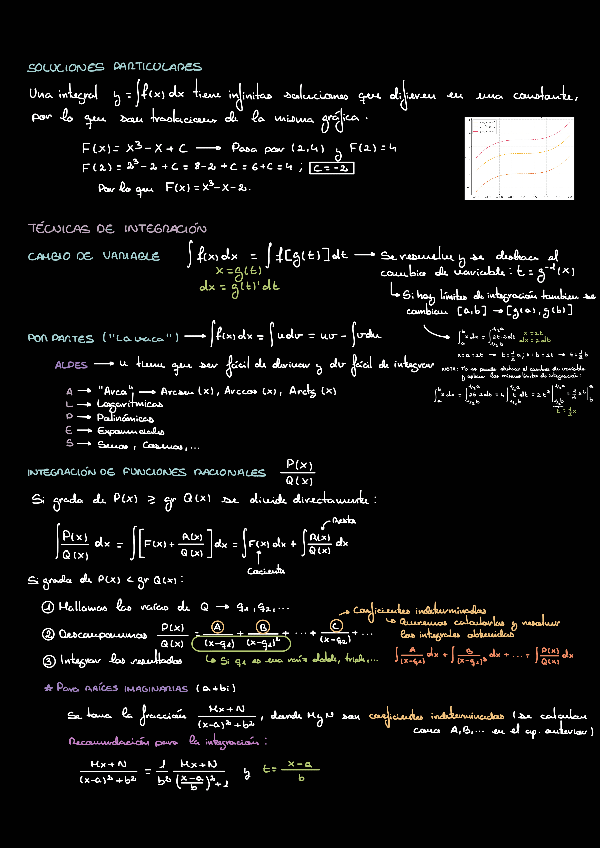 SOLUCIONES PARTICULARES
Una integral y = ∫f(x) dx tiene infinitas soluciones que difieren en una constante,
por lo que son traslaciones de la misma gráfica.
F(x) = x³ - x + C → Pasa por (2,4) y F(2) = 4
F(2) = 2³ - 2 + C = 8 - 2 + C = 6 + C = 4 ; C = -2
Por lo que F(x) = x³ - x - 2.
TÉCNICAS DE INTEGRACIÓN
CAMBIO DE VARIABLE ∫f(x) dx = ∫f[g(t)] dt → Se resuelve y se deshace al
x = g(t) cambio de variable: t = g⁻¹(x)
dx = g(t)' dt
↳ Si hay límites de integración tambien se
cambian [a,b] → [g(a), g(b)]
POR PARTES ("La vaca") → ∫f(x) dx = ∫u dv = uv - ∫v du
x = 2t
dx = 2dt
ALPES → u tiene que ser fácil de derivar y dv fácil de integrar
NOTA: Si no puedo deshacer el cambio de variable
A → "Arca" → Arcsen (x), Arccos (x), Arctg (x)
L → Logarítmicas
P → Polinómicas
E → Exponenciales
S → Senos, Cosenos,...
INTEGRACIÓN DE FUNCIONES RACIONALES P(x)/Q(x)
Si grado de P(x) ≥ gr Q(x) se divide directamente:
Resto
∫ P(x)/Q(x) dx = ∫[F(x) + R(x)/Q(x)] dx = ∫F(x) dx + ∫ R(x)/Q(x) dx
Cociente
Si grado de P(x) < gr Q(x):
① Hallamos las raíces de Q → q₁, q₂,...
→ Coeficientes indeterminados
↳ Queremos calcularlos y resolver
las integrales obtenidas
② Descomponemos P(x)/Q(x) = A/(x-q₁) + B/(x-q₁)² + ... + C/(x-q₂) + ...
③ Integrar los resultados ↳ Si q₁ es una raíz doble, triple,...
∫ A/(x-q₁) dx + ∫ B/(x-q₁)² dx + ... = ∫ P(x)/Q(x) dx
★ Para RAÍCES IMAGINARIAS (a+bi)
Se toma la fracción Mx+N/(x-a)²+b², donde M y N son coeficientes indeterminados (se calculan
como A, B,... en el ap. anterior)
Recomendación para la integración:
Mx+N/(x-a)²+b² = 1/b² Mx+N/(x-a/b)²+1 y t = x-a/b